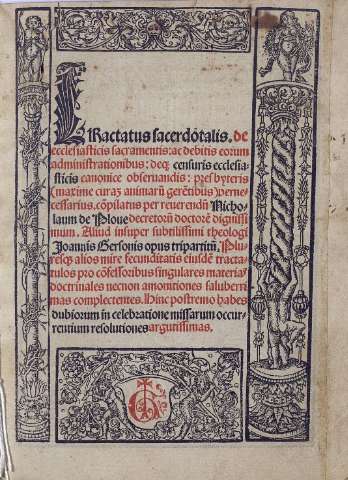 Tractatus sacerdotalis. de
ecclesiasticis sacramentis: ac debitis eorum
administrationibus: deq; censuris ecclesia-
sticis canonice obseruandis: presbyteris
(maxime curā animarū gerētibus) ꝑerne-
cessarius. cōpilatus per reuerendū Nicho-
laum de Ploue decretorū doctorē digniss i
mum. Aliud insuper subtilissimi theologi
Joannis Gersonis opus tripartitū. Plu-
resq; alios mire fecunditatis eiusdē tracta-
tulos pro cōfessoribus singulares materias
doctrinales necnon amonitiones saluberri
mas complectentes. Hinc postremo habes
dubiorum in celebratione missarum occur-
rentium resolutiones argutissimas.